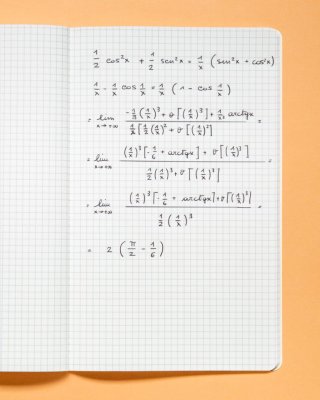 1/2 cos²x + 1/2 sen²x = 1/x (sen²x + cos²x)
1/x - 1/x cos 1/x = 1/x (1 - cos 1/x)
= lim x→+∞ (-1/3 (1/x)³ + o[(1/x)³] + 1/x³ arctgx) / (1/x [1/2 (1/x)² + o[(1/x)²]]) =
= lim x→+∞ ((1/x)³ [-1/6 + arctgx] + o[(1/x)³]) / (1/2 (1/x)³ + o[(1/x)³]) =
= lim x→+∞ ((1/x)³ [-1/6 + arctgx] + o[(1/x)³]) / (1/2 (1/x)³) =
= 2 (π/2 - 1/6)